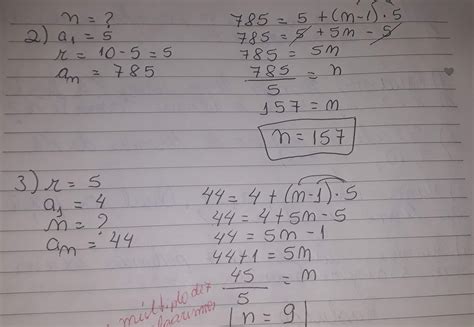 n = ?
2) a₁ = 5
r = 10 - 5 = 5
aₙ = 785
785 = 5 + (n-1) · 5
785 = 5 + 5n - 5
785 = 5n
785/5 = n
157 = n
n = 157
3) r = 5
a₁ = 4
n = ?
aₙ = 44
44 = 4 + (n-1) · 5
44 = 4 + 5n - 5
44 = 5n - 1
44+1 = 5n
45/5 = n
n = 9
múltiplo de